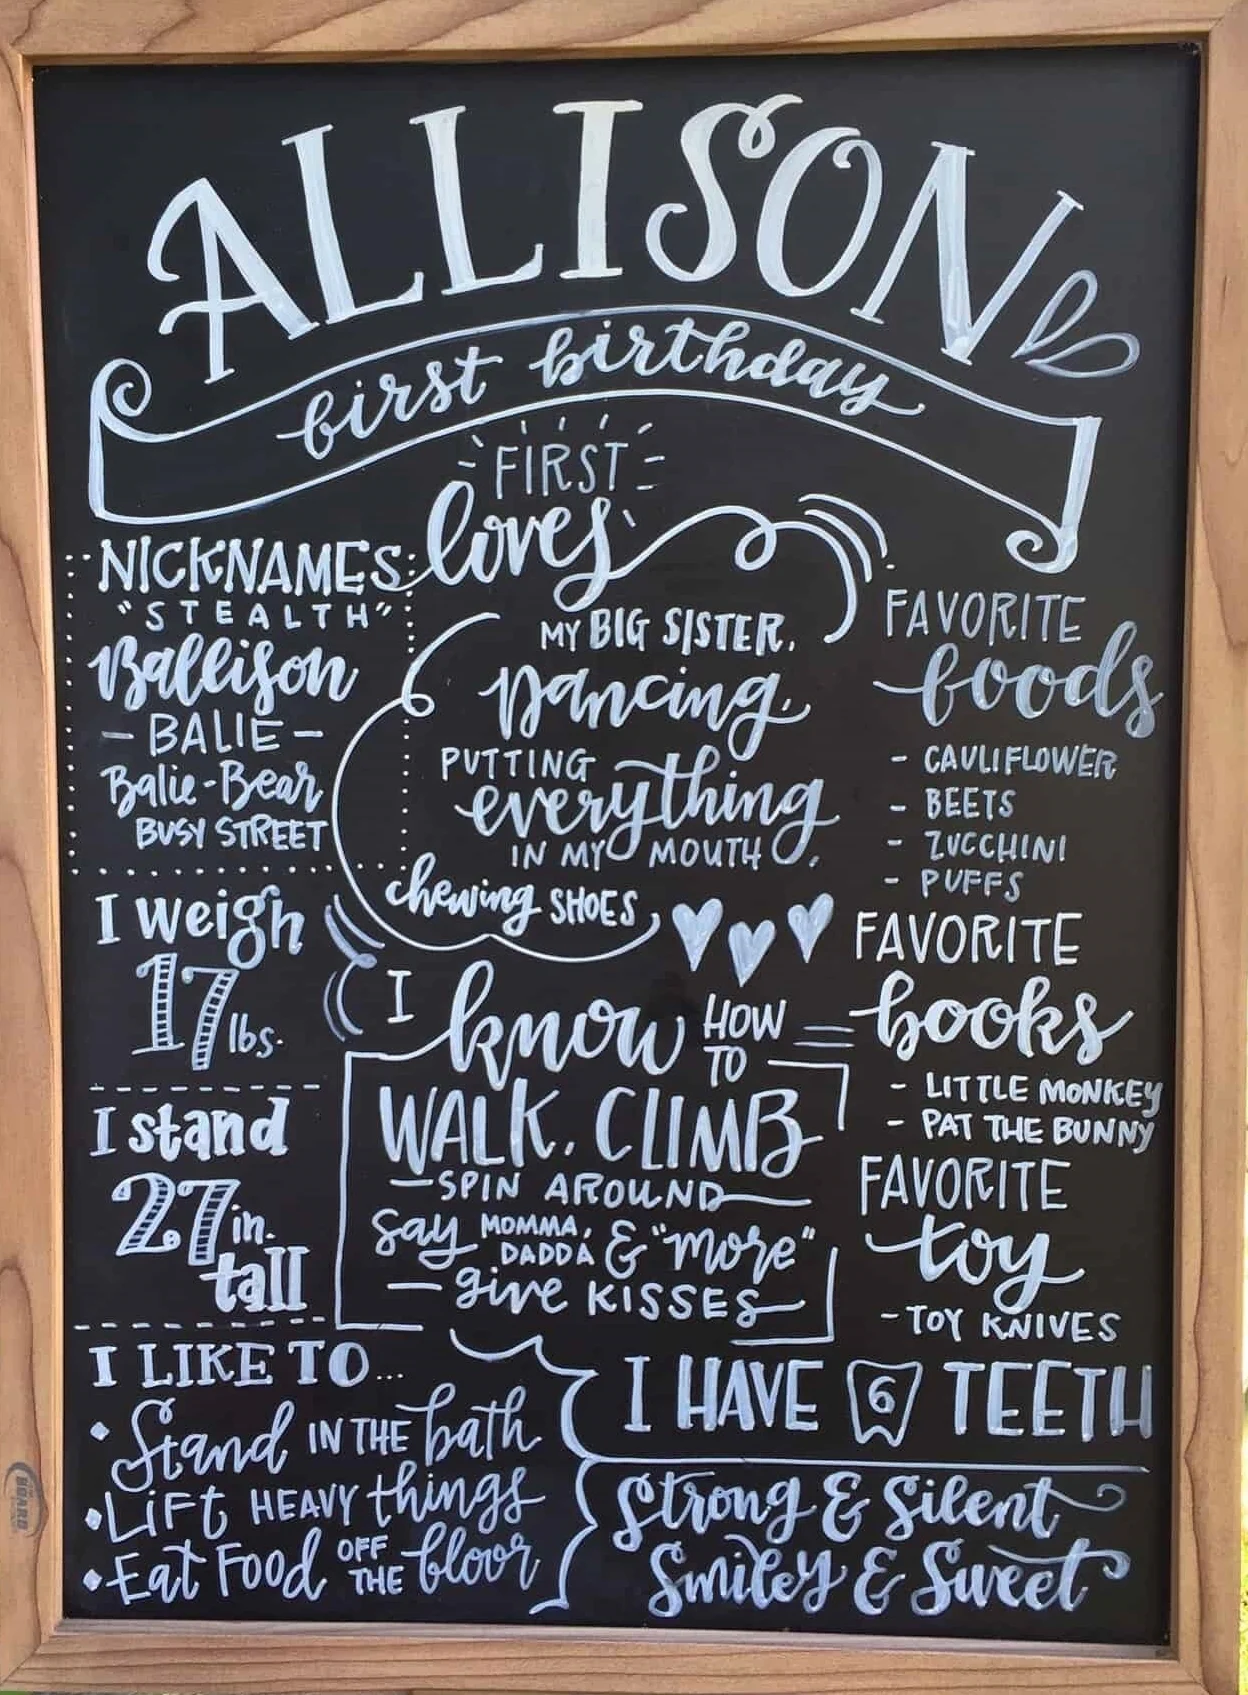 ALLISON
first birthday
FIRST
loves
NICKNAMES:
"STEALTH"
Ballison
- BALIE -
Balie-Bear
BUSY STREET
MY BIG SISTER,
Dancing,
PUTTING
everything
IN MY MOUTH,
chewing SHOES,
FAVORITE
foods
- CAULIFLOWER
- BEETS
- ZUCCHINI
- PUFFS
I weigh
17 lbs.
I stand
27 in.
tall
I know HOW
TO
WALK, CLIMB
SPIN AROUND
say MOMMA,
DADDA & "more"
give KISSES
FAVORITE
books
- LITTLE MONKEY
- PAT THE BUNNY
FAVORITE
toy
- TOY KNIVES
I LIKE TO...
• Stand IN THE bath
• Lift HEAVY things
• Eat Food OFF THE floor
I HAVE 6 TEETH
Strong & Silent
Smiley & Sweet
BOARD